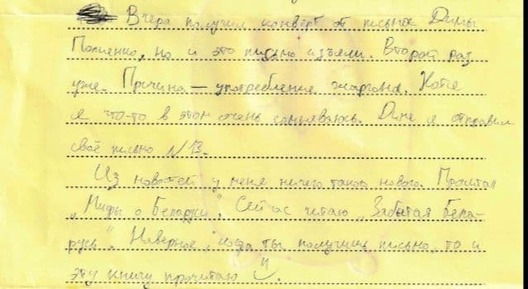 Вчера получил конверт от письма Димы
но и это письмо изъели. Второй раз
уже. Причина — употребление жаргона. Хотя
я что-то в этом очень сомневаюсь. Диме я отправил
своё письмо №13.
Из новостей у меня ничего такого нового. Прочитал
„Мифы о Беларуси". Сейчас читаю „Забытая Бела-
русь". Наверное, когда ты получишь письмо, то и
эту книгу прочитаю